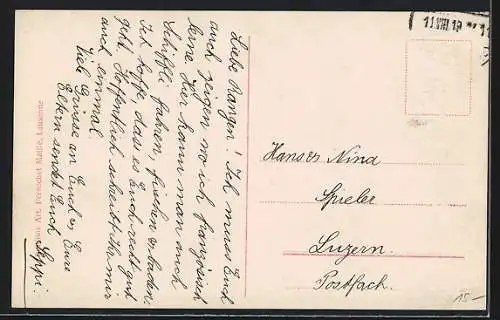 Liebe Rangen! Ich muss Euch
auch zeigen wo ich französisch
lerne. Hier kann man auch
Schiffli fahren, fischen u. baden.
Ich hoffe, dass es Euch recht gut
geht. Hoffentlich schreibt Ihr mir
auch einmal.
Viele Grüsse an Euch u. Eure
Eltern sendet Euch
Seppi.
Art. Perrochet Matile, Lausanne
11 VIII 12
Hans u. Nina
Spieler
Luzern.
Postfach.
15.-